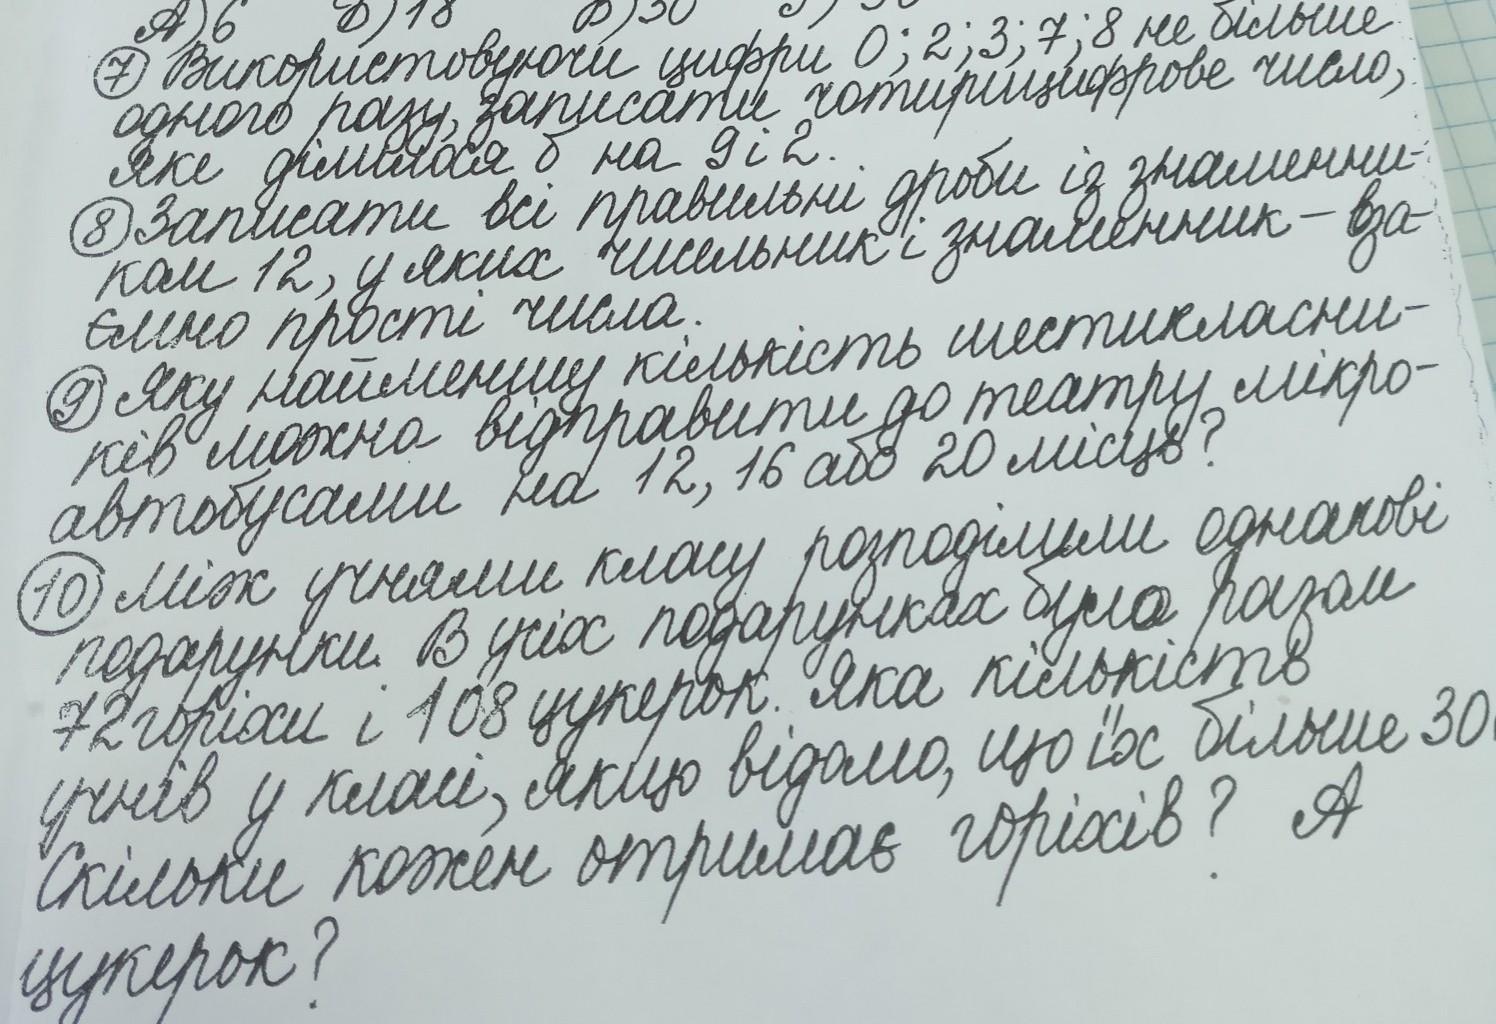 А) 6 Б) 18 В) 30
7 Використовуючи цифри 0; 2; 3; 7; 8 не більше
одного разу, записати чотирицифрове число,
яке ділилося б на 9 і 2.
8 Записати всі правильні дроби із знаменни-
ком 12, у яких чисельник і знаменник – вза-
ємно прості числа.
9 Яку найменшу кількість шестикласни-
ків можна відправити до театру мікро-
автобусами на 12, 16 або 20 місць?
10 Між учнями класу розподілили однакові
подарунки. В усіх подарунках було разом
72 горіхи і 108 цукерок. Яка кількість
учнів у класі, якщо відомо, що їх більше 30
Скільки кожен отримає горіхів? А
цукерок?